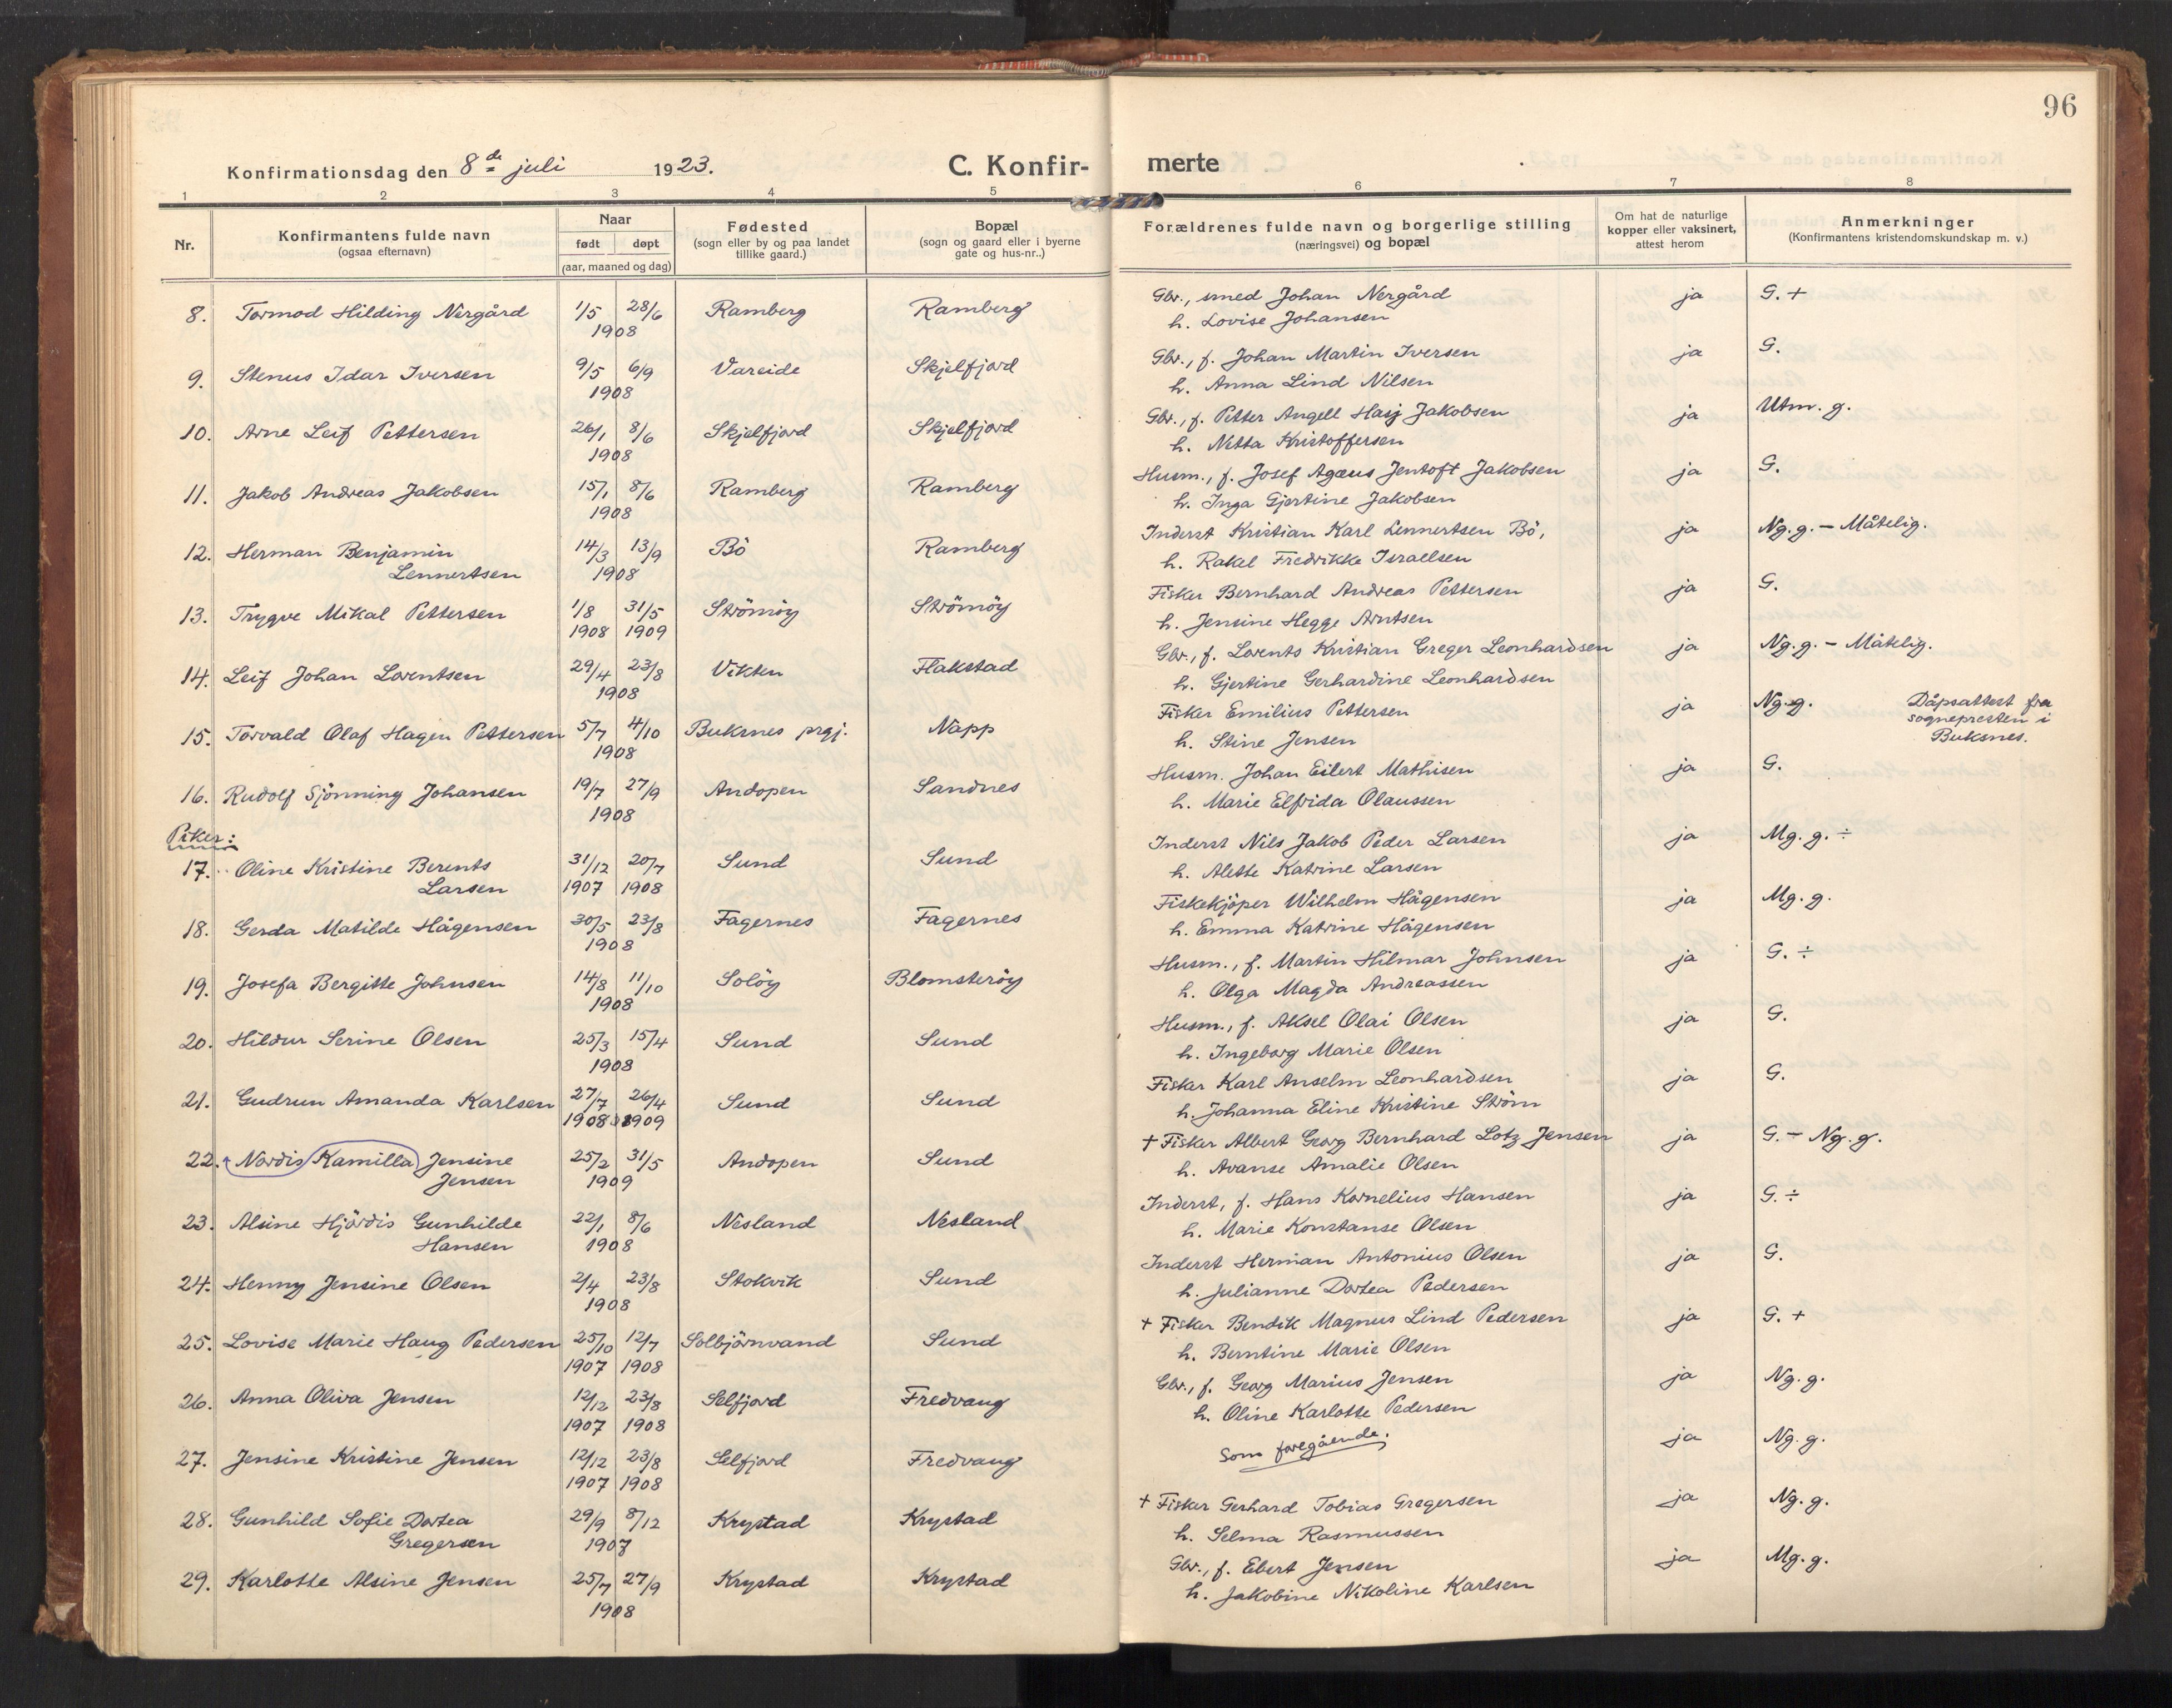 96
Konfirmationsdag den 8de juli 1923. C. Konfir- merte
1 2 3 4 5 6 7 8
Nr.
Konfirmantens fulde navn
(ogsaa efternavn)
Naar
født døpt
(aar, maaned og dag)
Fødested
(sogn eller by og paa landet
tillike gaard.)
Bopæl
(sogn og gaard eller i byerne
gate og hus-nr..)
Forældrenes fulde navn og borgerlige stilling
(næringsvei) og bopæl
Om hat de naturlige
kopper eller vaksinert,
attest herom
Anmerkninger
(Konfirmantens kristendomskundskap m. v.)
8. Tormod Hilding Nergård 1/5 28/6 Ramberg Ramberg Gbr., smed Johan Nergård ja G. +
1908 h. Lovise Johansen
9. Stenus Idar Iversen 9/5 6/9 Vareide Skjelfjord Gbr., f. Johan Martin Iversen ja G.
1908 h. Anna Lind Nilsen
10. Arne Leif Pettersen 26/1 8/6 Skjelfjord Skjelfjord Gbr., f. Petter Angell Hasj Jakobsen ja Utm. g.
1908 h. Netta Kristoffersen
11. Jakob Andreas Jakobsen 15/1 8/6 Ramberg Ramberg Husm., f. Josef Agæus Jentoft Jakobsen ja G.
1908 h. Inga Gjertine Jakobsen
12. Herman Benjamin 14/3 13/9 Bö Ramberg Inderst Kristian Karl Lennertsen Bö, ja Ng. g. – Måtelig.
Lennertsen 1908 h. Rakel Fredrikke Israelsen
13. Trygve Mikal Pettersen 1/8 31/5 Strömöy Strömöy Fisker Bernhard Andreas Pettersen ja G.
1908 1909 h. Jensine Hegge Arntsen
14. Leif Johan Lorentsen 29/4 23/8 Vikten Flakstad Gbr., f. Lorents Kristian Greger Leonhardsen ja Ng. g. – Måtelig.
1908 h. Gjertine Gerhardine Leonhardsen
15. Torvald Olaf Hagen Pettersen 5/7 4/10 Buksnes prgj. Napp Fisker Emilius Pettersen ja Ng. g. Dåpsattest fra
sognepresten i
Buksnes.
1908 h. Stine Jensen
16. Rudolf Sjönning Johansen 19/7 27/9 Andopen Sandnes Husm. Johan Eilert Mathisen ja G.
1908 h. Marie Elfrida Olaussen
Piker:
17. Oline Kristine Berents 31/12 20/7 Sund Sund Inderst Nils Jakob Peder Larsen ja Mg. g. ÷
Larsen 1907 1908 h. Alette Katrine Larsen
18. Gerda Matilde Hågensen 30/5 23/8 Fagernes Fagernes Fiskekjöper Wilhelm Hågensen ja Mg. g.
1908 h. Emma Katrine Hågensen
19. Josefa Bergitte Johnsen 14/8 11/10 Solöy Blomsteröy Husm., f. Martin Hilmar Johnsen ja G. ÷
1908 h. Olga Magda Andreassen
20. Hildur Serine Olsen 25/3 15/4 Sund Sund Husm., f. Aksel Olai Olsen ja G.
1908 h. Ingeborg Marie Olsen
21. Gudrun Amanda Karlsen 27/7 26/4 Sund Sund Fisker Karl Anselm Leonhardsen ja G.
1908 1909 h. Johanna Eline Kristine Ström
22. Nordis Kamilla Jensine 25/2 31/5 Andopen Sund + Fisker Albert Georg Bernhard Lotz Jensen ja G. – Ng. g.
Jensen 1909 h. Avanse Amalie Olsen
23. Alsine Hjördis Gunhilde 22/1 8/6 Nesland Nesland Inderst, f. Hans Kornelius Hansen ja G. ÷
Hansen 1908 h. Marie Konstanse Olsen
24. Henny Jensine Olsen 2/4 23/8 Stokvik Sund Inderst Herman Antonius Olsen ja G.
1908 h. Julianne Dortea Pedersen
25. Lovise Marie Haug Pedersen 25/10 12/7 Solbjörnvand Sund + Fisker Bendik Magnus Lind Pedersen ja G. +
1907 1908 h. Berntine Marie Olsen
26. Anna Oliva Jensen 12/12 23/8 Selfjord Fredvang Gbr., f. Georg Marius Jensen ja Ng. g.
1907 1908 h. Oline Karlotte Pedersen
27. Jensine Kristine Jensen 12/12 23/8 Selfjord Fredvang Som foregående. ja Ng. g.
1907 1908
28. Gunhild Sofie Dortea 29/9 8/12 Krystad Krystad + Fisker Gerhard Tobias Gregersen ja Ng. g.
Gregersen 1907 h. Selma Rasmussen
29. Karlotte Alsine Jensen 25/7 27/9 Krystad Krystad Gbr., f. Ebert Jensen ja Mg. g.
1908 h. Jakobine Nikoline Karlsen